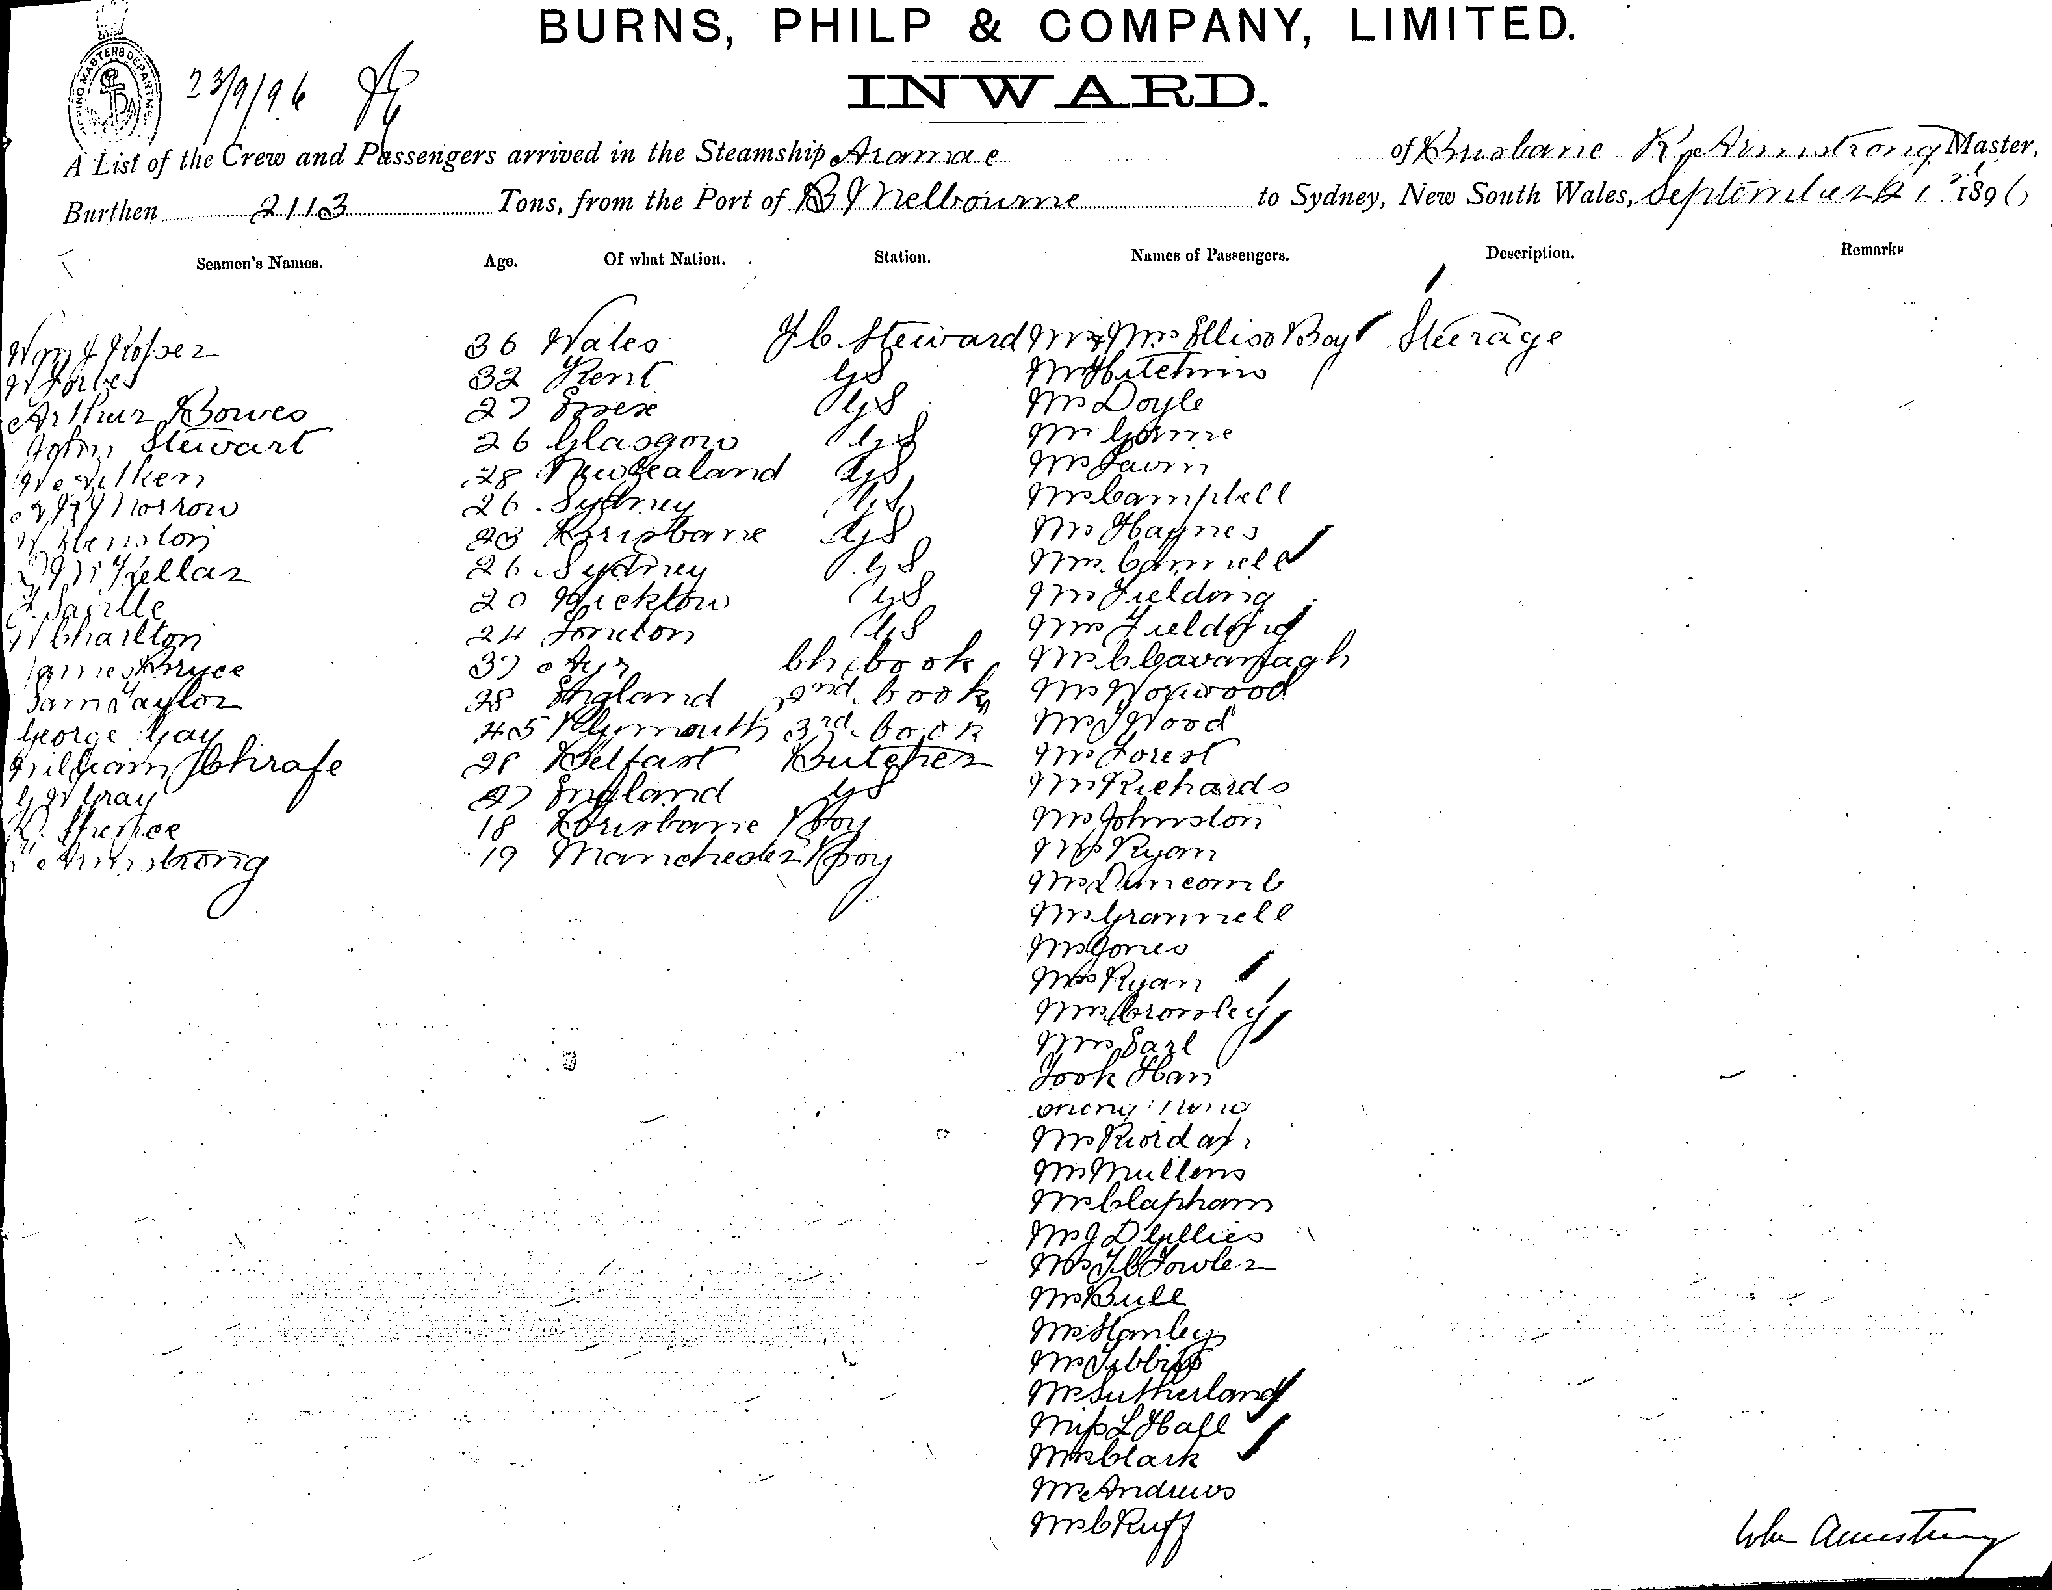 BURNS, PHILP & COMPANY, LIMITED.
INWARD.
23/9/96
A List of the Crew and Passengers arrived in the Steamship Aramac of Brisbane R Armstrong Master,
Burthen 2113 Tons, from the Port of Melbourne to Sydney, New South Wales, September 21st 1896
Seamen's Names. Age. Of what Nation. Station. Names of Passengers. Description. Remarks
Wm J 36 Wales F.C. Steward Mr & Mrs Ellis & Boy Steerage
W Forbes 32 Kent GS Mr Hitchins
Arthur Bowes 27 Essex GS Mr Doyle
John Stewart 26 Glasgow GS Mr Gorme
W Aitken 28 New Zealand GS Mr Lavin
Morrow 26 Sydney GS Mr Campbell
W Henston 23 Brisbane GS Mr Haynes
McKellar 26 Sydney GS Mrs Gammell
F. Saville 20 Wicklow GS Mr Fielding
W Charlton 24 London GS Mrs Fielding
James Bryce 37 Ayr Ch. Cook Mr C Cavanagh
Sam Taylor 28 England 2nd Cook Mr Norwood
George Gay 45 Plymouth 3rd Cook Mr J Wood
William J Chirafe 28 Belfast Butcher Mr Forest
G W Gray 27 England GS Mr Richards
Spence 18 Brisbane Boy Mr Johnston
Armstrong 19 Manchester Boy Mr Ryan
Mr Duncomb
Mr Grannell
Mr Jones
Mrs Ryan
Mrs Bromley
Mrs Earl
Took Han
Mr Riordan
Mr Mullens
Mr Clapham
Mr J D Gillies
Mr F C Fowler
Mr Bull
Mr Hanley
Mr Tibbits
Mrs Sutherland
Miss L Hall
Mrs Clark
Mr Andrews
Mr C Ruff
John Armstrong